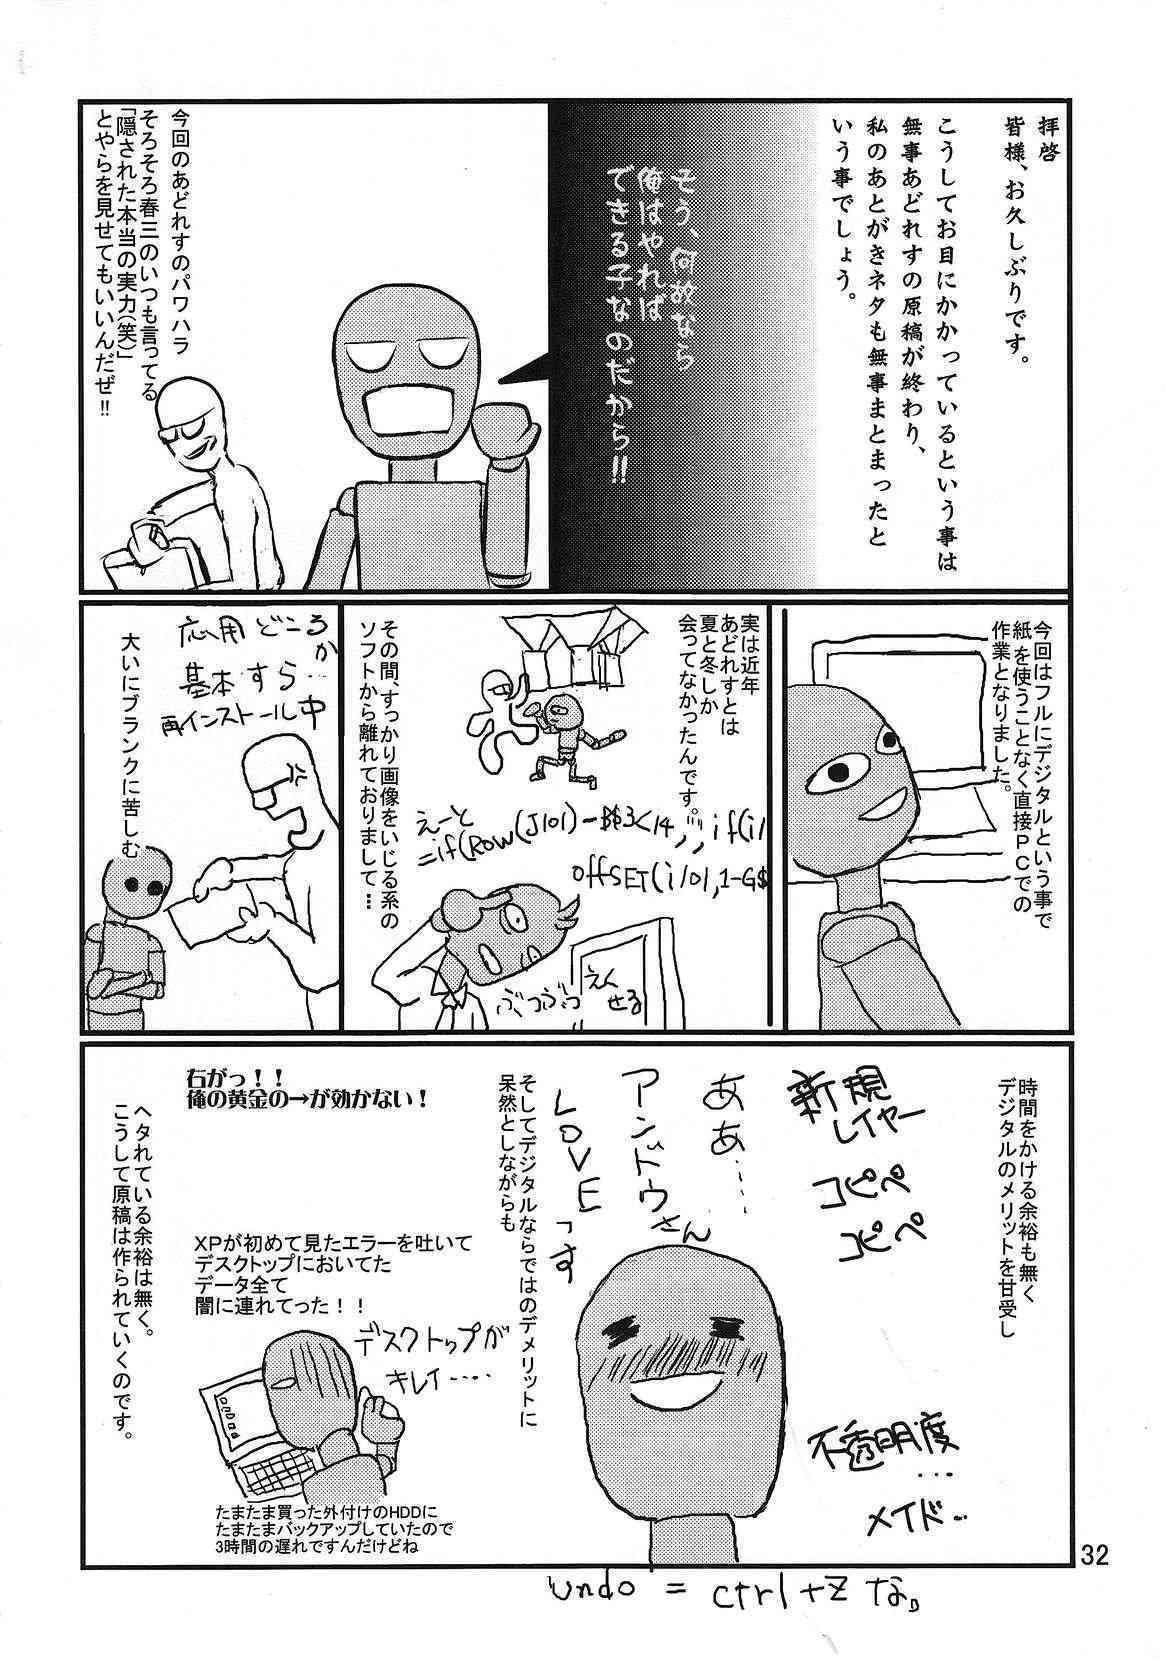 拝啓
皆様、お久しぶりです。
こうしてお目にかかっているという事は
無事あどれすの原稿が終わり、
私のあとがきネタも無事まとまったと
いう事でしょう。
そう、何故なら
俺はやれば
できる子なのだから!!
今回のあどれすのパワハラ
そろそろ春三のいつも言ってる
「隠された本当の実力(笑)」
とやらを見せてもいいんだぜ!!
今回はフルにデジタルという事で
紙を使うことなく直接PCでの
作業となりました。
実は近年
あどれすとは
夏と冬しか
会ってなかったんです。
えーと
=if(Row(J101)-B$3<14,,,if(i1
OffSET(i101,1-G$
ぶつぶつ
えく
せる
その間、すっかり画像をいじる系の
ソフトから離れておりまして…
応用どころか
基本すら…
再インストール中
大いにブランクに苦しむ
時間をかける余裕も無く
デジタルのメリットを甘受し
新規
レイヤー
コピペ
コピペ
不透明度
…
メイド…
ああ…
アンドウさん
LOVEっす
そしてデジタルならではのデメリットに
呆然としながらも
右がっ!!
俺の黄金の→が効かない!
XPが初めて見たエラーを吐いて
デスクトップにおいてた
データ全て
闇に連れてった!!
デスクトップが
キレイ……
たまたま買った外付けのHDDに
たまたまバックアップしていたので
3時間の遅れですんだけどね
ヘタれている余裕は無く。
こうして原稿は作られていくのです。
undo = ctrl+Z な。
32